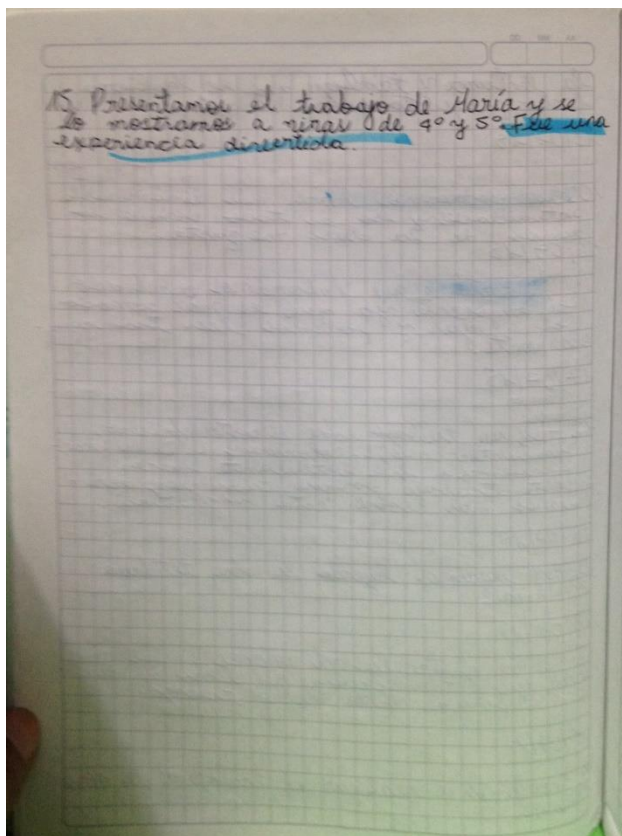 15. Presentamos el trabajo de María y se
lo mostramos a niñas de 4° y 5°. Fue una
experiencia divertida.